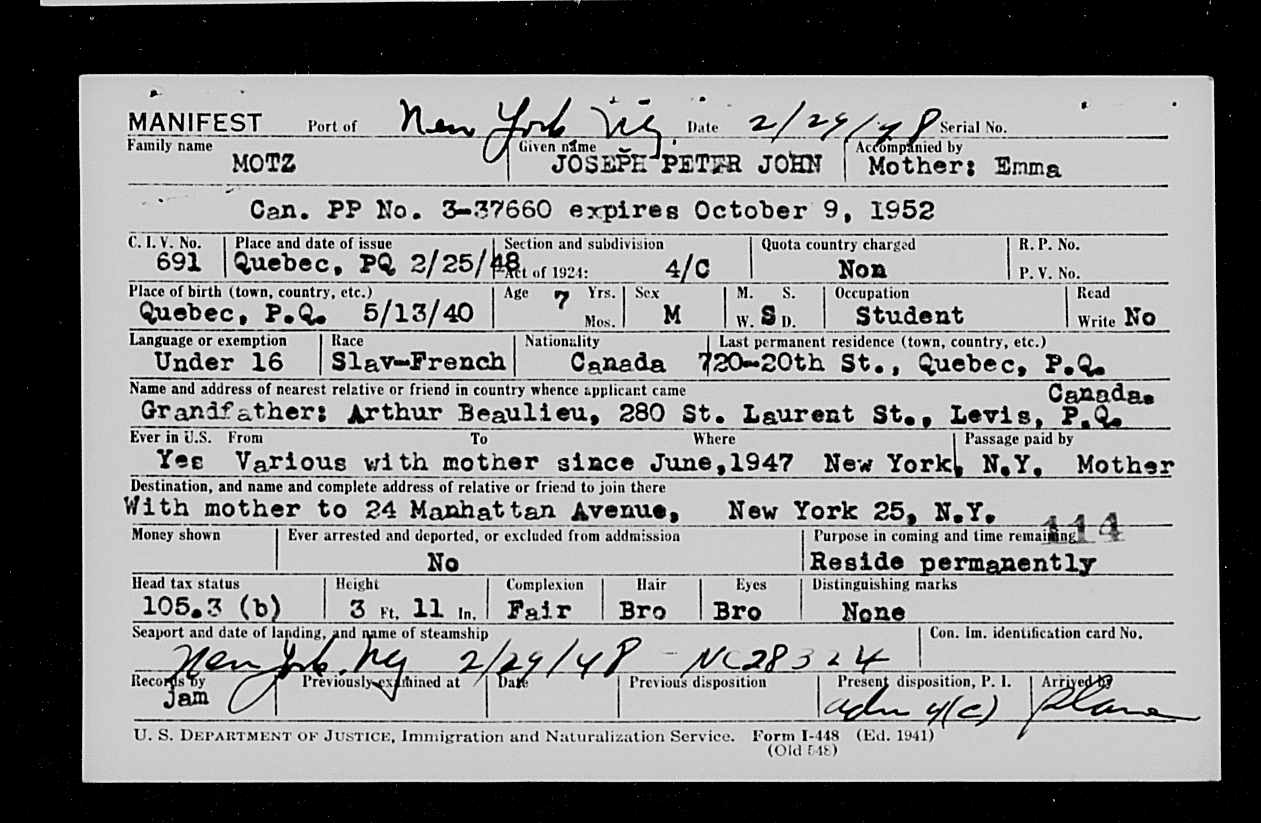 MANIFEST Port of New York NY Date 2/29/48 Serial No.
Family name Given name Accompanied by
MOTZ JOSEPH PETER JOHN Mother: Emma
Can. PP No. 3-37660 expires October 9, 1952
C. I. V. No. Place and date of issue Section and subdivision Quota country charged R. P. No.
691 Quebec, PQ 2/25/48 Act of 1924: 4/C Non P. V. No.
Place of birth (town, country, etc.) Age 7 Yrs. Sex M. S. Occupation Read
Quebec, P.Q. 5/13/40 Mos. M W. S D. Student Write No
Language or exemption Race Nationality Last permanent residence (town, country, etc.)
Under 16 Slav-French Canada 720-20th St., Quebec, P.Q.
Name and address of nearest relative or friend in country whence applicant came Canada.
Grandfather: Arthur Beaulieu, 280 St. Laurent St., Levis, P.Q.
Ever in U.S. From To Where Passage paid by
Yes Various with mother since June,1947 New York, N.Y. Mother
Destination, and name and complete address of relative or friend to join there
With mother to 24 Manhattan Avenue, New York 25, N.Y.
114
Money shown Ever arrested and deported, or excluded from admission Purpose in coming and time remaining
No Reside permanently
Head tax status Height Complexion Hair Eyes Distinguishing marks
105.3 (b) 3 Ft. 11 In. Fair Bro Bro None
Seaport and date of landing, and name of steamship Con. Im. identification card No.
New York, NY 2/29/48 - NC28324
Records by Previously examined at Date Previous disposition Present disposition, P. I. Arrived by
jam adm 4(c) plane
U. S. DEPARTMENT OF JUSTICE, Immigration and Naturalization Service. Form I-448 (Ed. 1941)
(Old 548)